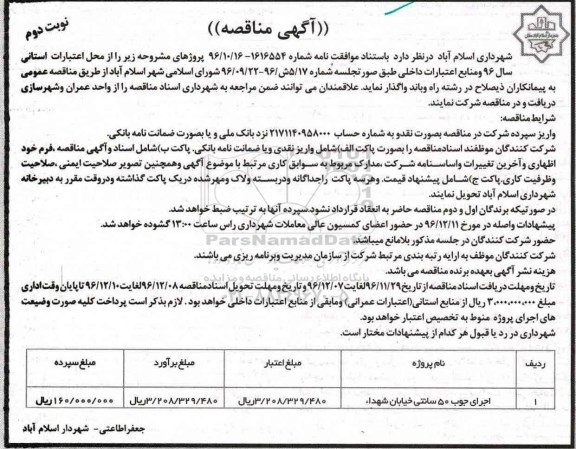 ((آگهی مناقصه))
نوبت دوم
شهرداری اسلام آباد درنظر دارد باستناد موافقت نامه شماره ۱۶۱۶۵۵۴- ۹۶/۱۰/۱۶ پروژهای مشروحه زیر را از محل اعتبارات استانی
سال ۹۶ ومنابع اعتبارات داخلی طبق صورتجلسه شماره ۱۷/ش/۹۶-۹۶/۰۹/۲۲ شورای اسلامی شهر اسلام آباد از طریق مناقصه عمومی
به پیمانکاران ذیصلاح در رشته راه وباند واگذار نماید. علاقمندان می توانند ضمن مراجعه به شهرداری اسناد مناقصه را از واحد عمران وشهرسازی
دریافت و در مناقصه شرکت نمایند.
شرایط مناقصه:
واریز سپرده شرکت در مناقصه بصورت نقدو به شماره حساب ۲۱۷۱۱۴۰۹۵۸۰۰۰ نزد بانک ملی و یا بصورت ضمانت نامه بانکی.
شرکت کنندگان موظفند اسنادمناقصه را بصورت پاکت الف)شامل واریز نقدی ویا ضمانت نامه بانکی. پاکت ب)شامل اسناد وآگهی مناقصه ،فرم خود
اظهاری وآخرین تغییرات واساسنامه شرکت ،مدارک مربوط به سوابق کاری مرتبط با موضوع آگهی وهمچنین تصویر صلاحیت ایمنی ،صلاحیت
وظرفیت کاری.پاکت ج)شامل پیشنهاد قیمت. وهرسه پاکت راجداگانه ودربسته ولاک ومهرشده دریک پاکت گذاشته ودروقت مقرر به دبیرخانه
شهرداری اسلام آباد تحویل نمایند.
در صورتیکه برندگان اول و دوم مناقصه حاضر به انعقاد قرارداد نشود سپرده آنها به ترتیب ضبط خواهد شد.
پیشنهادات واصله در مورخ ۹۶/۱۲/۱۱ در حضور اعضای کمسیون عالی معاملات شهرداری راس ساعت ۱۳:۰۰ گشوده خواهد شد.
حضور شرکت کنندگان در جلسه مذکور بلامانع میباشد.
شرکت کنندگان موظف به ارایه رتبه بندی مرتبط شرکت از سازمان مدیریت وبرنامه ریزی می باشند.
هزینه نشر آگهی بعهده برنده مناقصه می باشد.
تاریخ ومهلت دریافت اسناد مناقصه از تاریخ ۹۶/۱۱/۲۹لغایت۹۶/۱۲/۰۷ و تاریخ ومهلت تحویل اسنادمناقصه ۹۶/۱۲/۰۸لغایت۹۶/۱۲/۱۰ تا پایان وقت اداری
مبلغ ۳.۰۰۰.۰۰۰.۰۰۰ ریال از منابع استانی(اعتبارات عمرانی) ومابقی از منابع اعتبارات داخلی خواهد بود . لازم بذکر است پرداخت کلیه صورت وضعیت
های اجرای پروژه منوط به تخصیص اعتبار خواهد بود.
شهرداری در رد یا قبول هر کدام از پیشنهادات مختار است.
ردیف نام پروژه مبلغ اعتبار مبلغ برآورد مبلغ سپرده
۱ اجرای جوب ۵۰ سانتی خیابان شهداء ۳/۲۰۸/۳۲۹/۴۸۰ریال ۳/۲۰۸/۳۲۹/۴۸۰ریال ۱۶۰/۰۰۰/۰۰۰ریال
جعفراطاعتی- شهردار اسلام آباد
ParsNamadData
پایگاه اطلاع رسانی مناقصه و مزایده